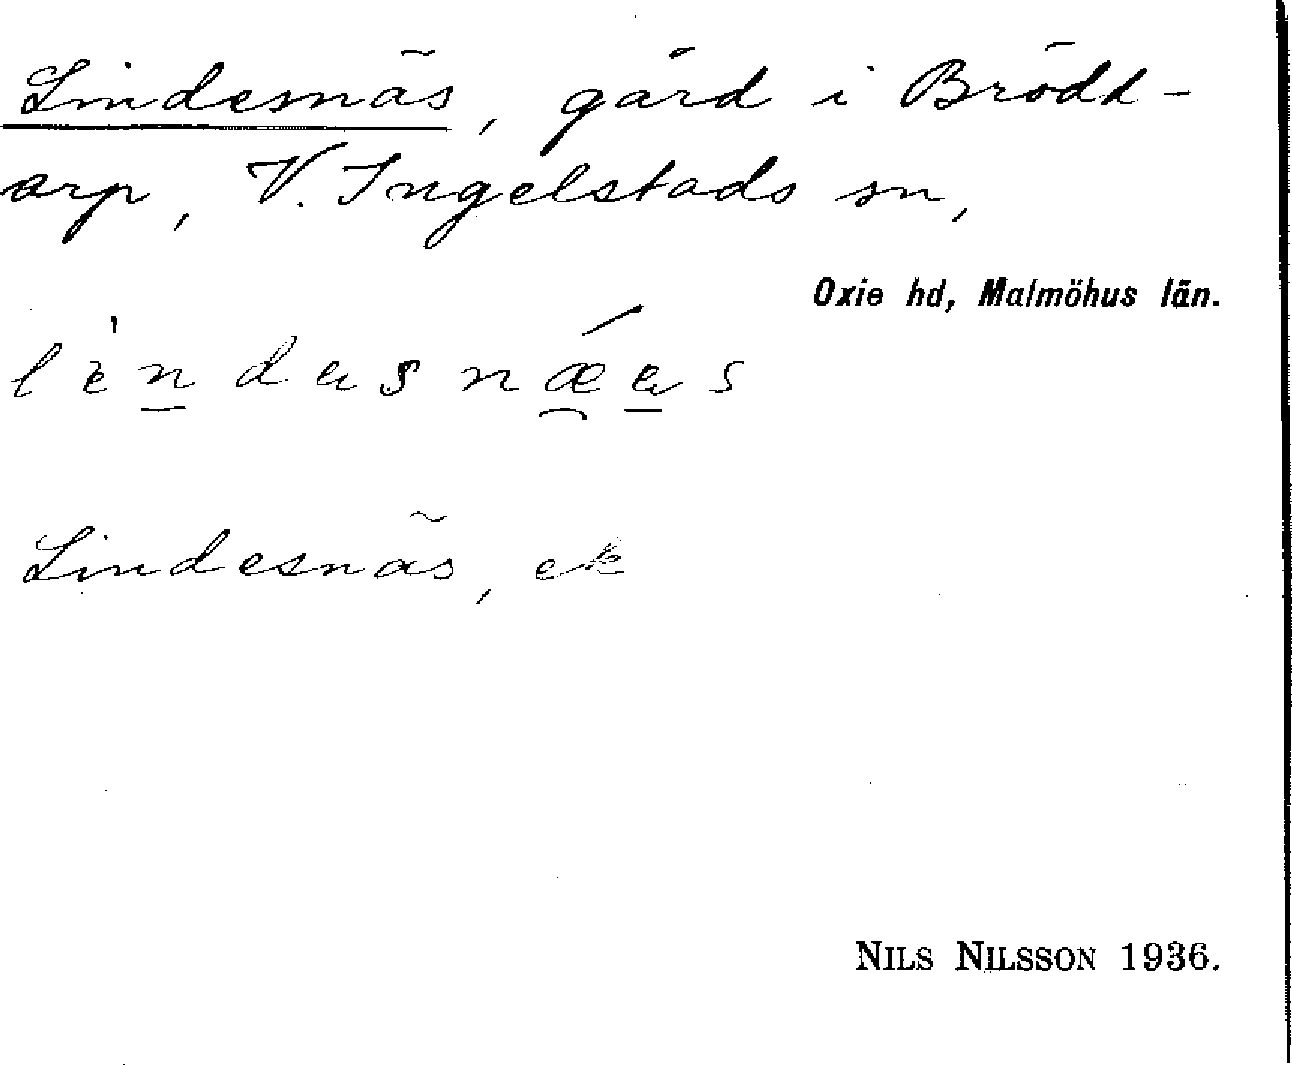 Lindesnäs, gård i Brödd-
arp, V. Ingelstads sn,
Oxie hd, Malmöhus län.
Lindesnäs, ek
NILS NILSSON 1936.